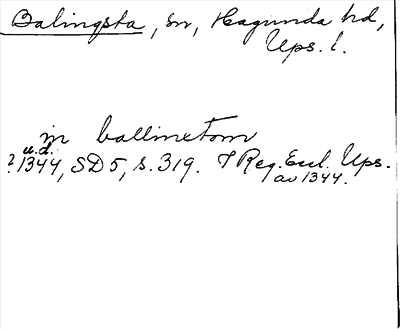 Balingsta, sn, Hagunda hd,
Ups. l.
in ballinxtom
u.d.
? 1344, SD 5, s. 319. I Reg. Eccl. Ups.
av 1344.